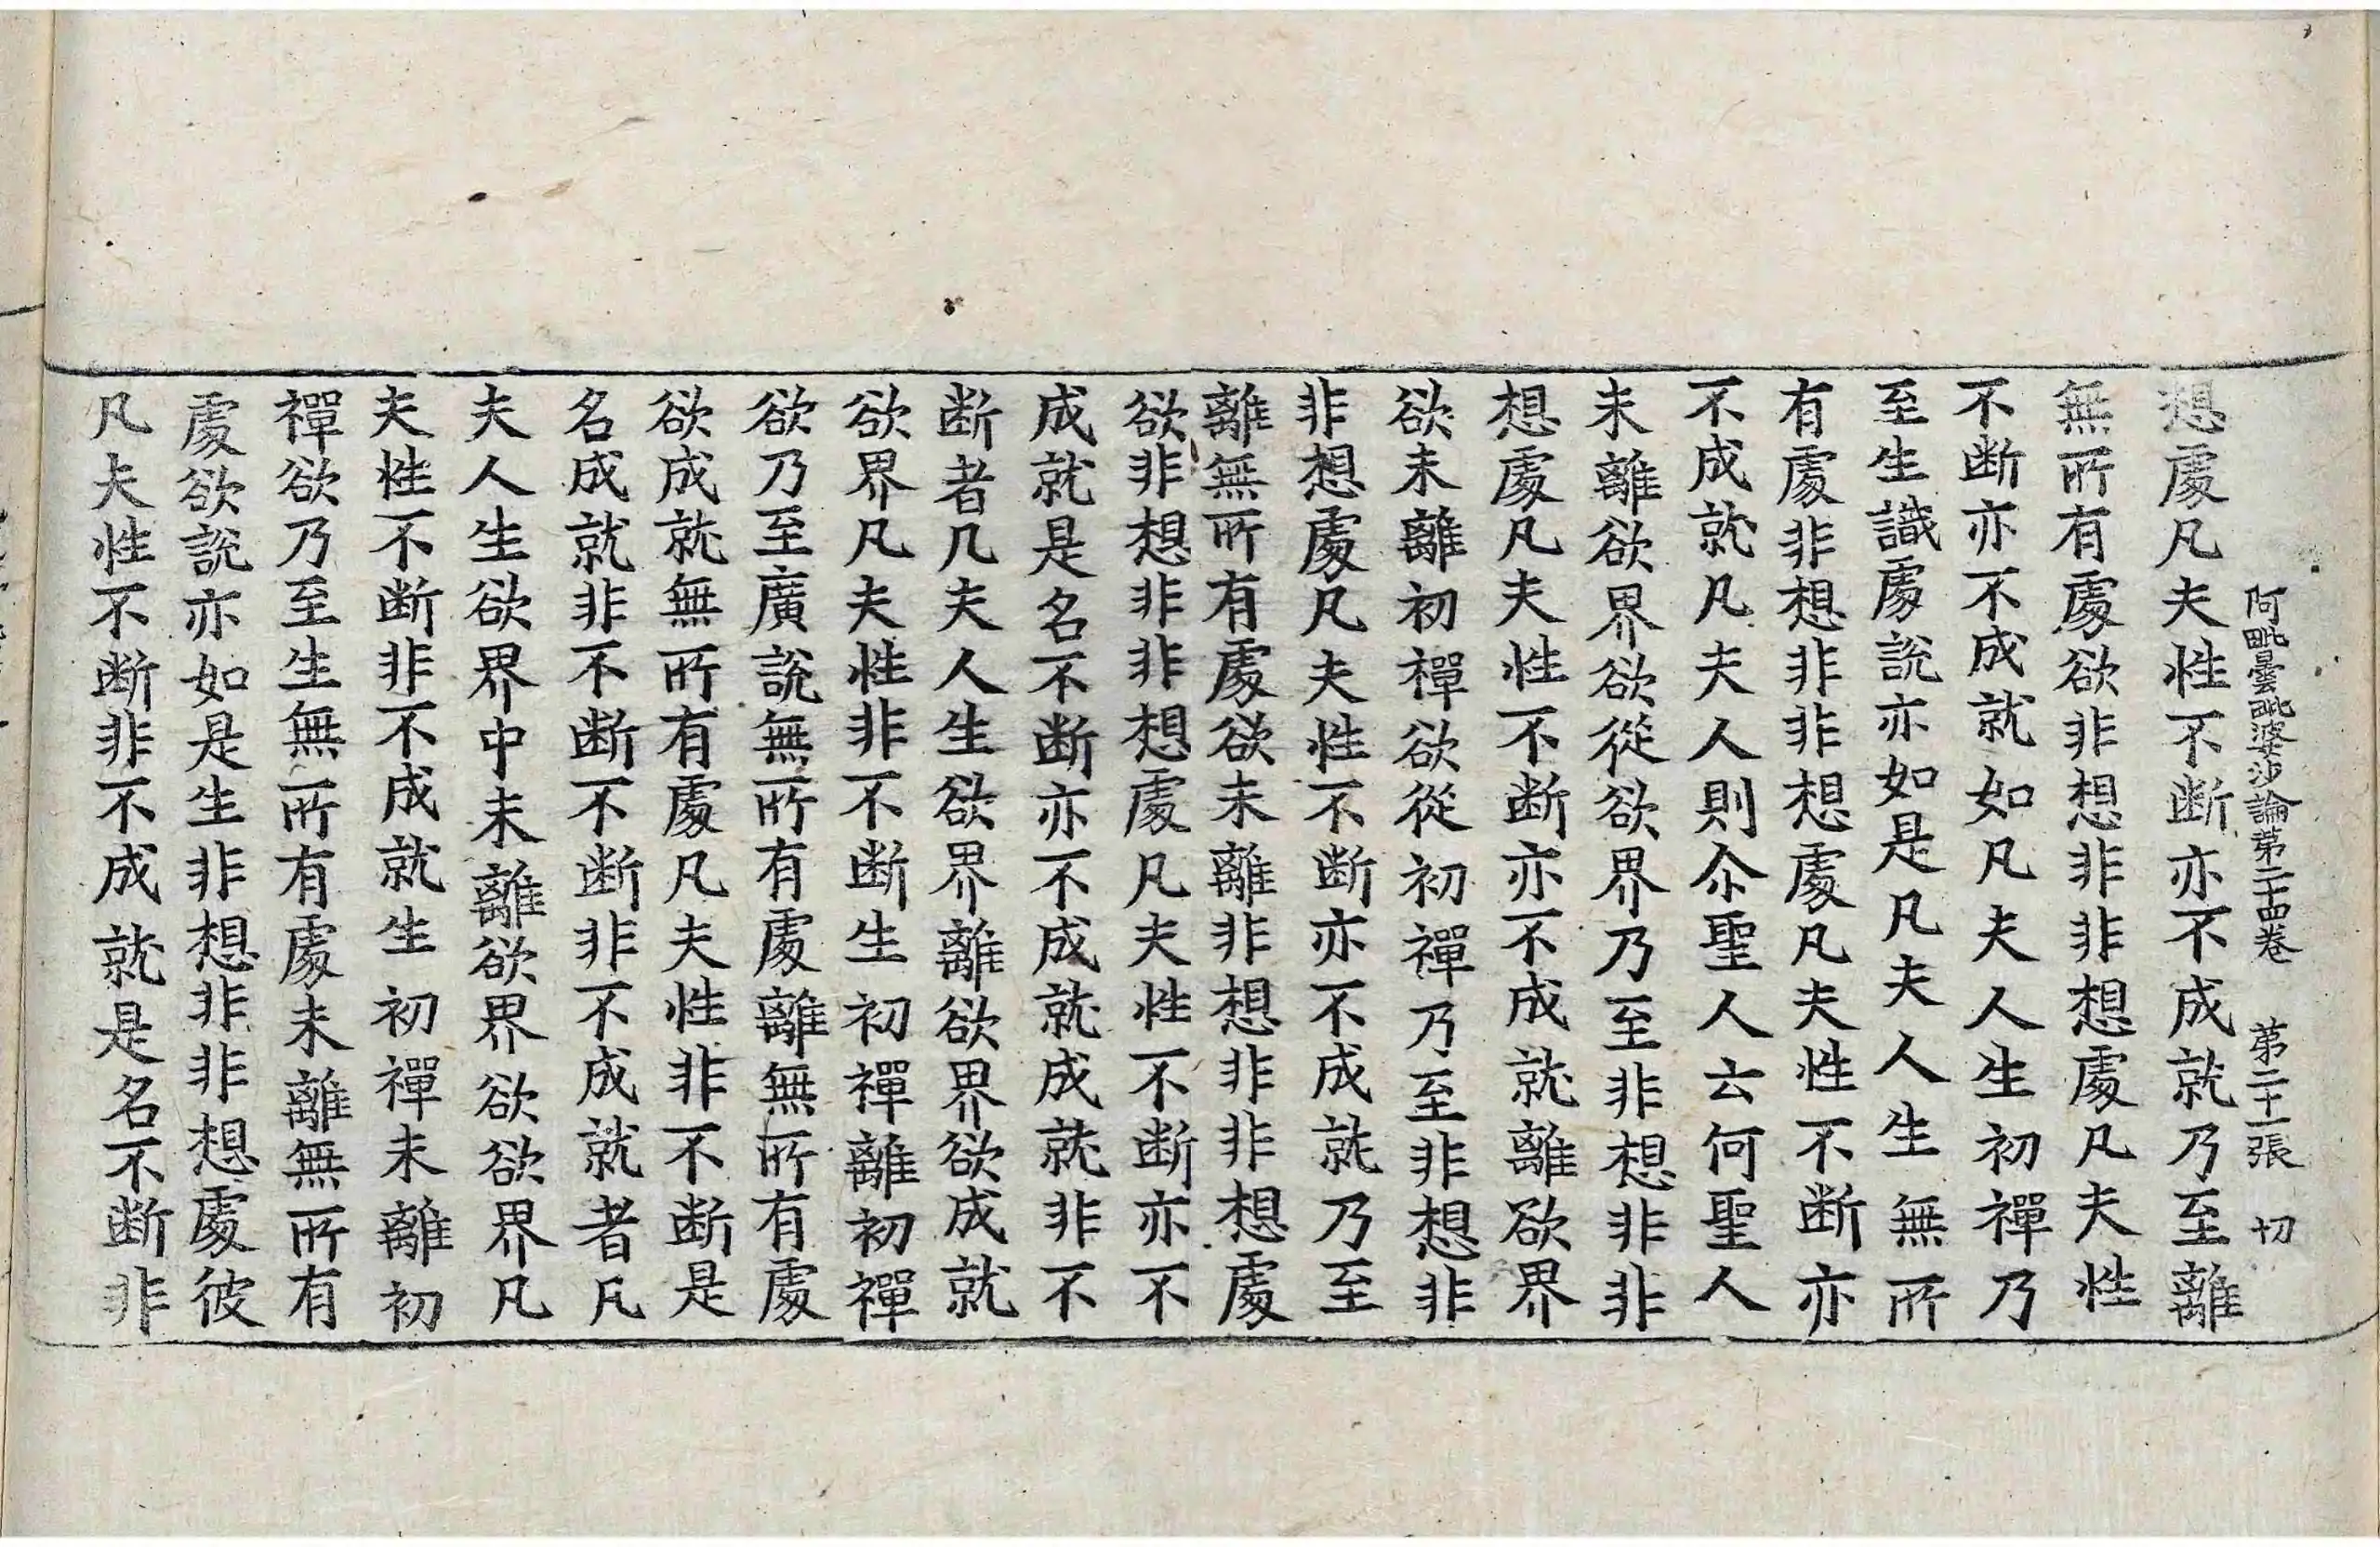 阿毗曇毗婆沙論第二十四卷　第二十一張　切
想處凡夫性不断亦不成就乃至離
無所有處欲非想非非想處凡夫性
不断亦不成就如凡夫人生初禪乃
至生識處說亦如是凡夫人生無所
有處非想非非想處凡夫性不断亦
不成就凡夫人則尒聖人云何聖人
未離欲界欲從欲界乃至非想非非
想處凡夫性不断亦不成就離欲界
欲未離初禪欲從初禪乃至非想非
非想處凡夫性不断亦不成就乃至
離無所有處欲未離非想非非想處
欲非想非非想處凡夫性不断亦不
成就是名不断亦不成就成就非不
断者凡夫人生欲界離欲界欲成就
欲界凡夫性非不断生初禪離初禪
欲乃至廣說無所有處離無所有處
欲成就無所有處凡夫性非不断是
名成就非不断不断非不成就者凡
夫人生欲界中未離欲界欲欲界凡
夫性不断非不成就生初禪未離初
禪欲乃至生無所有處未離無所有
處欲說亦如是生非想非非想處彼
凡夫性不断非不成就是名不断非